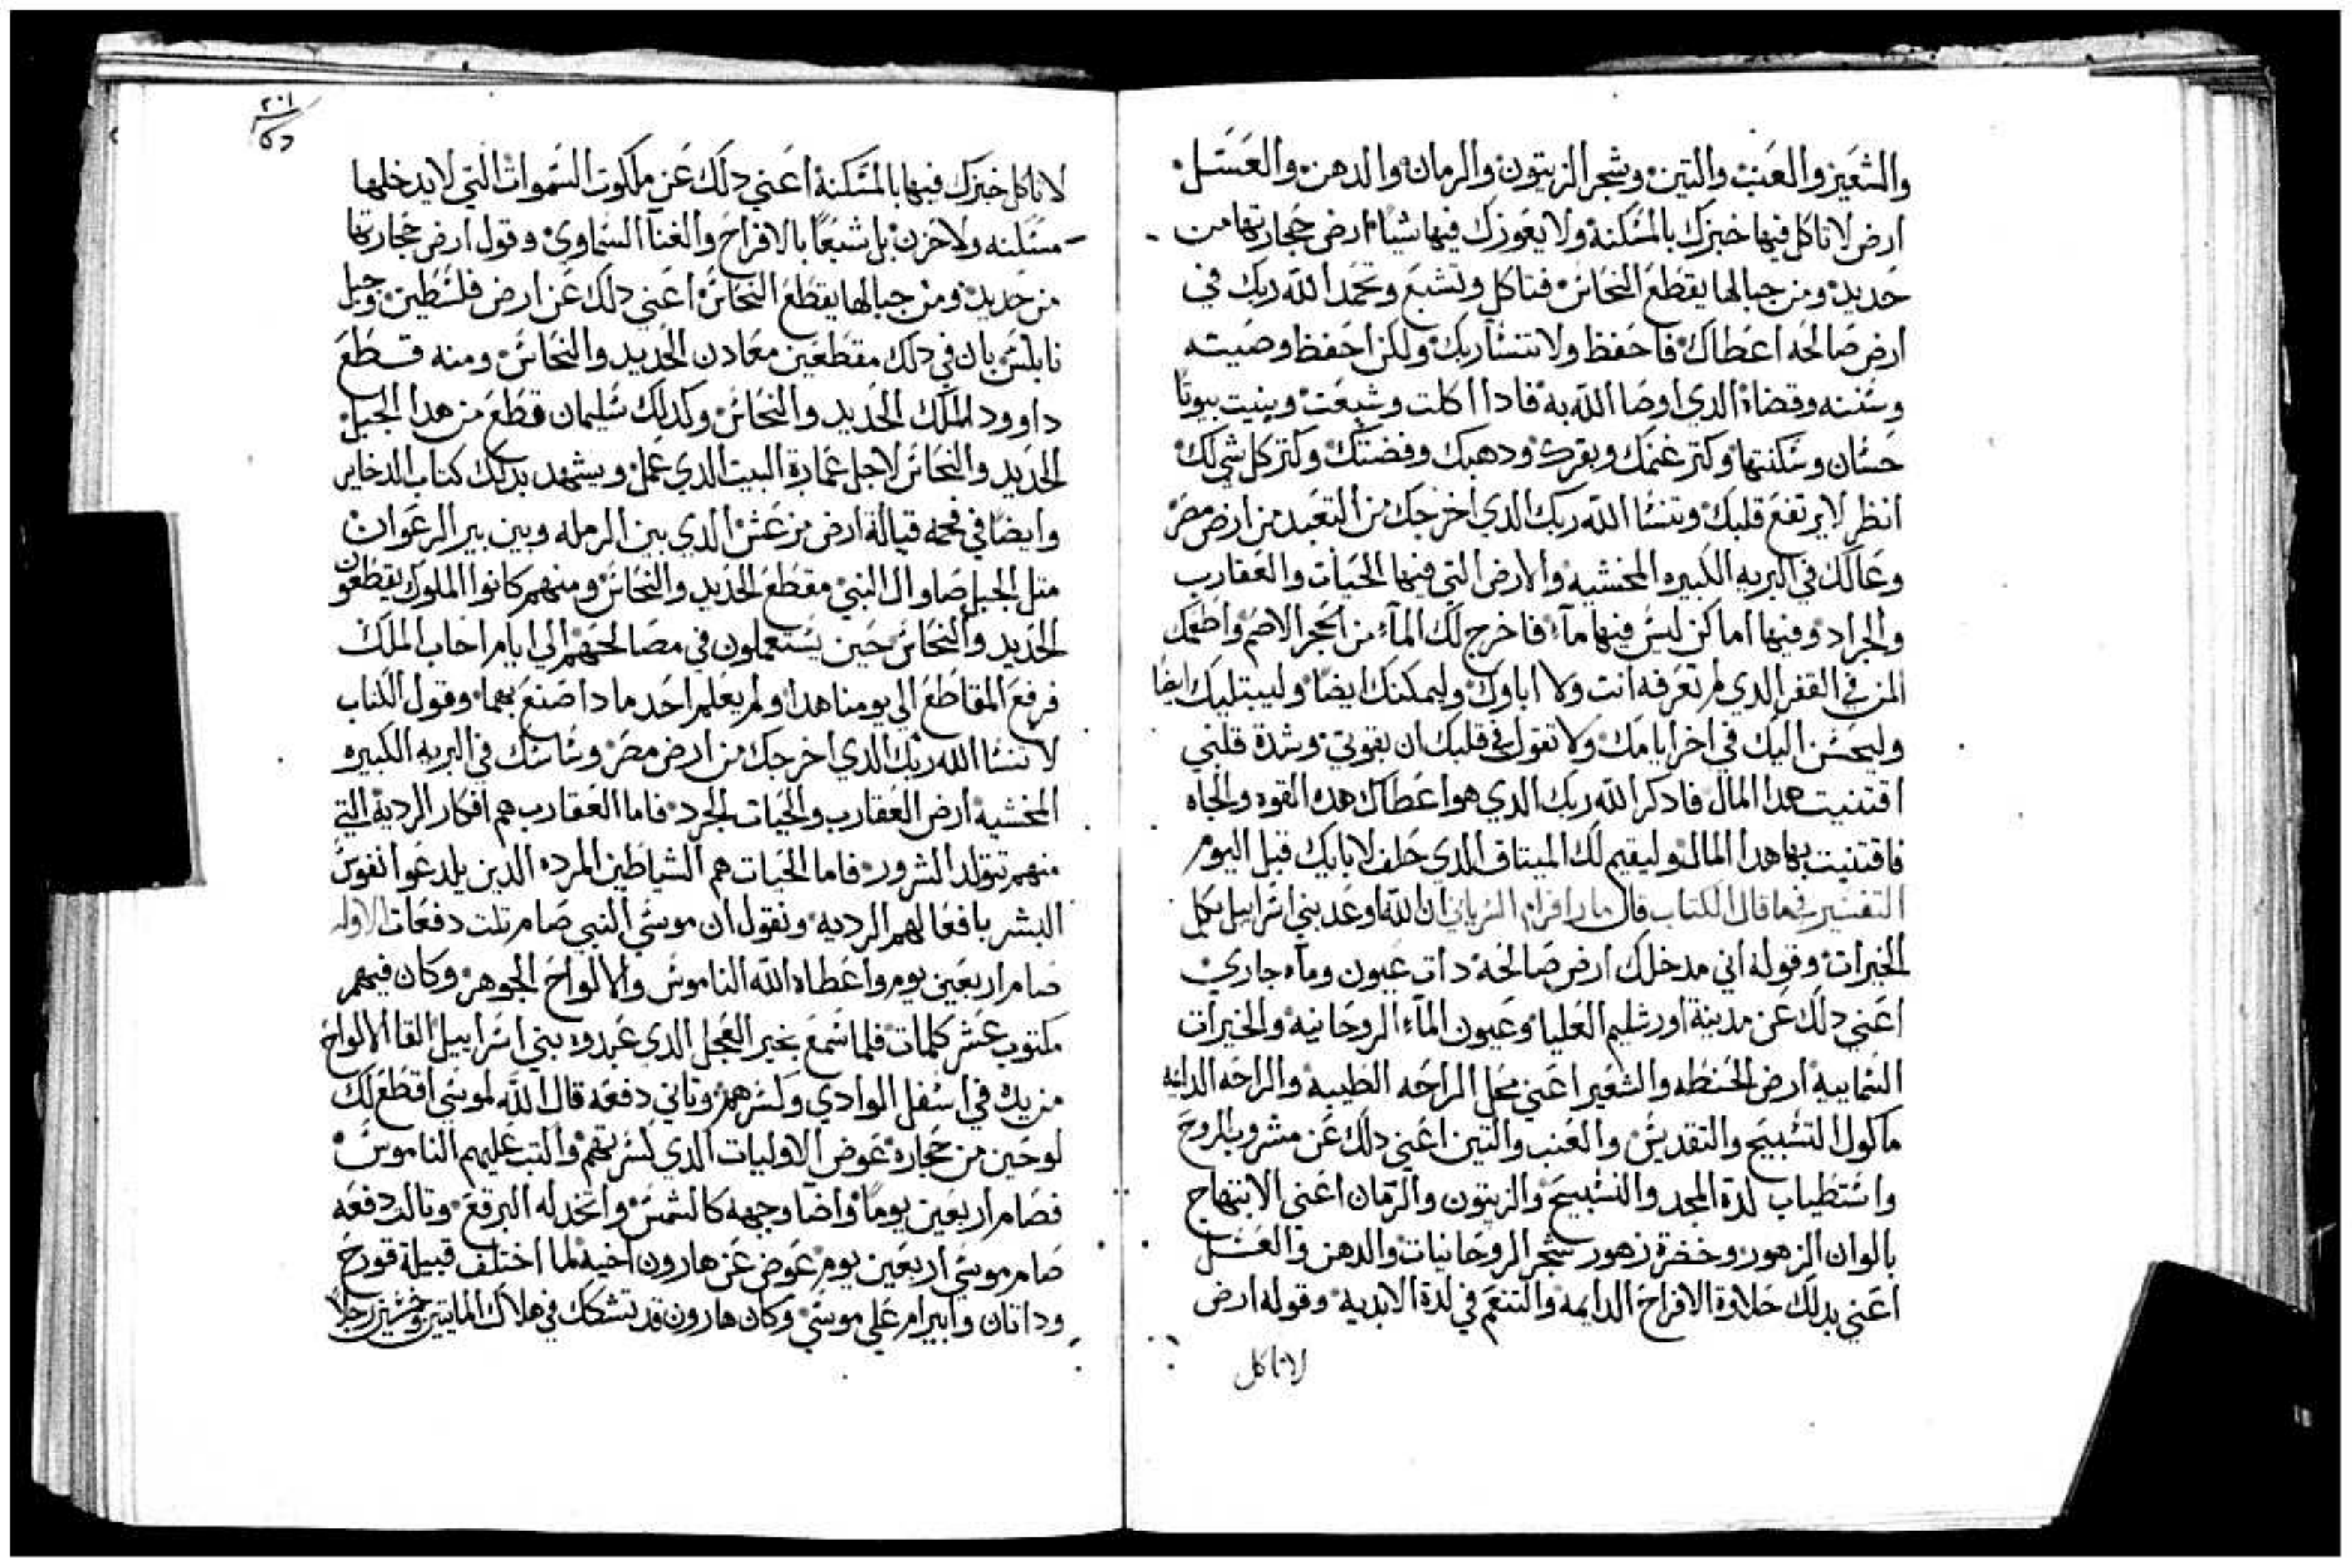 والشعير والعنب والتين وشجر الزيتون والرمان والدهن والعسل
ارض لا تاكل فيها خبزك بالمسكنة ولا يعوزك فيها شيا ارض حجارتها من
حديد ومن جبالها يقطع النحاس فتاكل وتشبع وتحمد الله ربك في
ارض صالحه اعطاك فاحفظ ولا تنسا ربك ولكن احفظ وصيته
وسننه وقضاة الدي اوصا الله به فادا اكلت وشبعت وبنيت بيوتا
حسان وسكنتها وكتر غنمك وبقرك ودهبك وفضتك وكتر كل شي لك
انظر لا يرتفع قلبك وتنسا الله ربك الدي اخرجك من التعبد من ارض مصر
وعالك في البريه الكبيره المخشيه والارض التي فيها الحيات والعقارب
والجراد وفيها اماكن ليس فيها مآء فاخرج لك المآء من الحجر الاصم واطعمك
المن في القفر الدي لم تعرفه انت ولا اباوك وليمكنك ايضا وليبتليك ايضا
وليحسن اليك في اخر ايامك ولا تقول في قلبك ان بقوتي وشدة قلبي
اقتنيت هدا المال فادكر الله ربك الدي هو اعطاك هده القوه والجاه
فاقتنيت بها هدا المال وليقيم لك الميتاق الدي حلف لابايك قبل اليوم
التفسير فيما قال الكتاب قال مار افرام السرياني ان الله اوعد بني اسرابيل بكل
الخيرات وقوله اني مدخلك ارض صالحة دات عيون ومآء جاري
اعني دلك عن مدينة اورشليم العليا وعيون المآء الروحانيه والخيرات
السماييه ارض الحنطه والشعير اعني محل الراحه الطيبه والراحه الدايمه
ماكول التسبيح والتقديس والعنب والتين اعني دلك عن مشروب الروح
واستطياب لدة المجد والتسبيح والزيتون والرمان اعني الابتهاج
بالوان الزهور وخضرة زهور شجر الروحانيات والدهن والعسل
اعني بدلك حلاوة الافراح الدايمه والتنعم في لدة الابديه وقوله ارض
لا تاكل
٢٠١
لا تاكل خبزك فيها بالمسكنة اعني دلك عن ملكوت السموات التي لا يدخلها
مسكنه ولا حزن بل شبعا بالافراح والغنآ السماوي وقول ارض حجارتها
من حديد ومن جبالها يقطع النحاس اعني دلك عن ارض فلسطين وجبل
نابلس بان في دلك مقطعين معادن الحديد والنحاس ومنه قطع
داوود الملك الحديد والنحاس وكدلك سليمان قطع من هدا الجبل
الحديد والنحاس لاجل عمارة البيت الدي عمل ويشهد بدلك كتاب الدخاير
وايضا في فحمه قبالة ارض مرعش الدي بين الرمله وبين بير الرعوان
متل الجبل صاوال النبي مقطع الحديد والنحاس ومنهم كانوا الملوك يقطعون
الحديد والنحاس حين يستعملون في مصالحهم الي ايام احاب الملك
فرفع المقاطع الي يومنا هدا ولم يعلم احد ما دا صنع بهما وقول الكتاب
لا تنسا الله ربك الدي اخرجك من ارض مصر وساسك في البريه الكبيره
المخشيه ارض العقارب والحيات الجرد فاما العقارب هم افكار الرديه التي
منهم تتولد الشرور فاما الحيات هم الشياطين المرده الدين يلدعوا نفوس
البشر بافعالهم الرديه ونقول ان موسي النبي صام تلت دفعات الاوله
صام اربعين يوم واعطاه الله الناموس والالواح الجوهر وكان فيهم
مكتوب عشر كلمات فلما سمع بخبر العجل الدي عبدوه بني اسرابيل القا الالواح
من يده في اسفل الوادي وكسرهم وتاني دفعه قال الله لموسي اقطع لك
لوحين من حجارة عوض الاوليات الدي كسرتهم واكتب عليهم الناموس
فصام اربعين يوما واضا وجهه كالشمس واتخد له البرقع وتالت دفعه
صام موسي اربعين يوم عوض عن هارون اخيه لما اختلف قبيلة قورح
وداتان وابيرام علي موسي وكان هارون قد تشكك في هلاك المايتين وخمسين رجلا